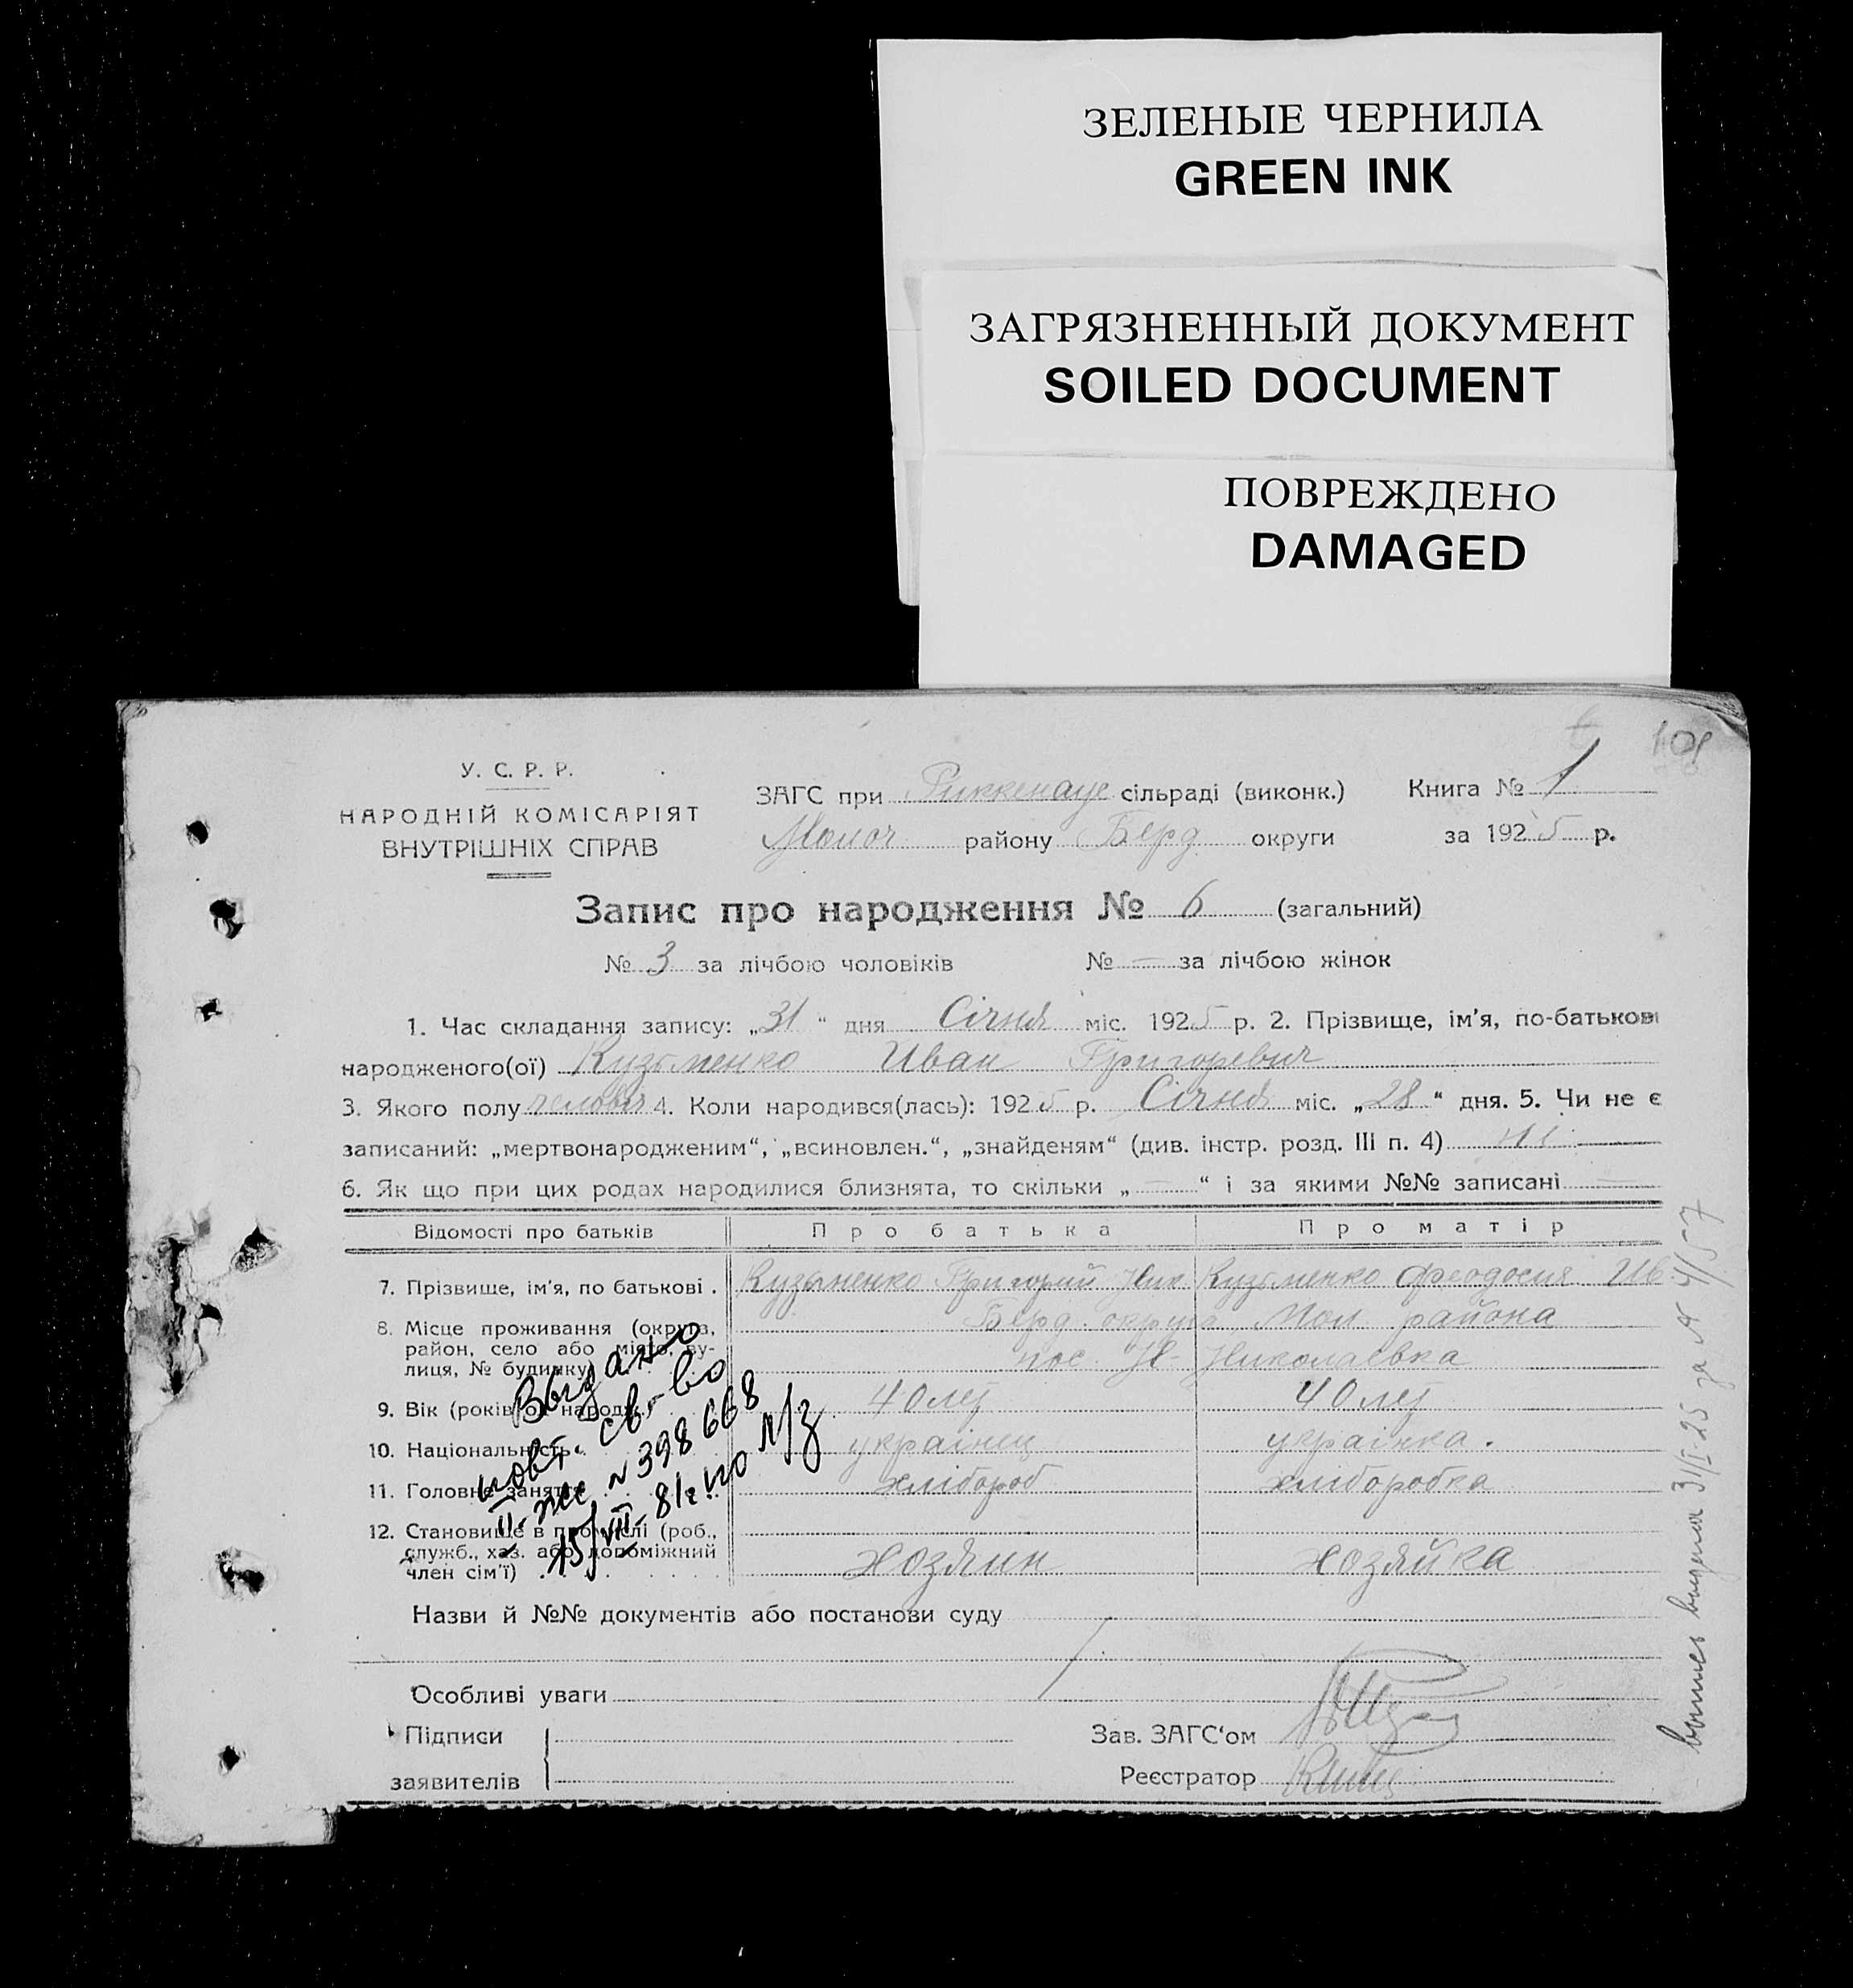 ЗЕЛЕНЫЕ ЧЕРНИЛА
GREEN INK
ЗАГРЯЗНЕННЫЙ ДОКУМЕНТ
SOILED DOCUMENT
ПОВРЕЖДЕНО
DAMAGED
У. С. Р. Р.
НАРОДНІЙ КОМІСАРІЯТ
ВНУТРІШНІХ СПРАВ
ЗАГС при Риккенауе сільраді (виконк.) Книга № 1
Молоч району Берд округи за 1925 р.
Запис про народження № 6 (загальний)
№ 3 за лічбою чоловіків № — за лічбою жінок
1. Час складання запису: „31“ дня Січня міс. 1925 р. 2. Прізвище, ім'я, по-батькові
народженого(ої) Кузьменко Иван Григоревич
3. Якого полу 4. Коли народився(лась): 1925 р. Січня міс. „28“ дня. 5. Чи не є
записаний: „мертвонародженим“, „всиновлен.“, „знайденям“ (див. інстр. розд. III п. 4) ні
6. Як що при цих родах народилися близнята, то скільки „—“ і за якими №№ записані —
Відомості про батьків Про батька Про матір
7. Прізвище, ім'я, по батькові . Кузьменко Григорий Ник Кузьменко Феодосия Ив
8. Місце проживання (округа, район, село або місто, вулиця, № будинку) Берд. округа Мол района
пос. Н-Николаевка
9. Вік (років од народж.) 40 лет 40 лет
10. Національність украінец украінка.
11. Головне заняття хлібороб хліборобка
12. Становище в промислі (роб.,
служб., хаз. або допоміжний
член сім'ї) хозяин хозяйка
Назви й №№ документів або постанови суду
Особливі уваги
Підписи
заявителів
Зав. ЗАГС'ом
Реєстратор
Выдано
повт. св-во
II-жс № 398668
15/VIII-81г по л/з
выпись выдана 31/I-25 за № 4/57